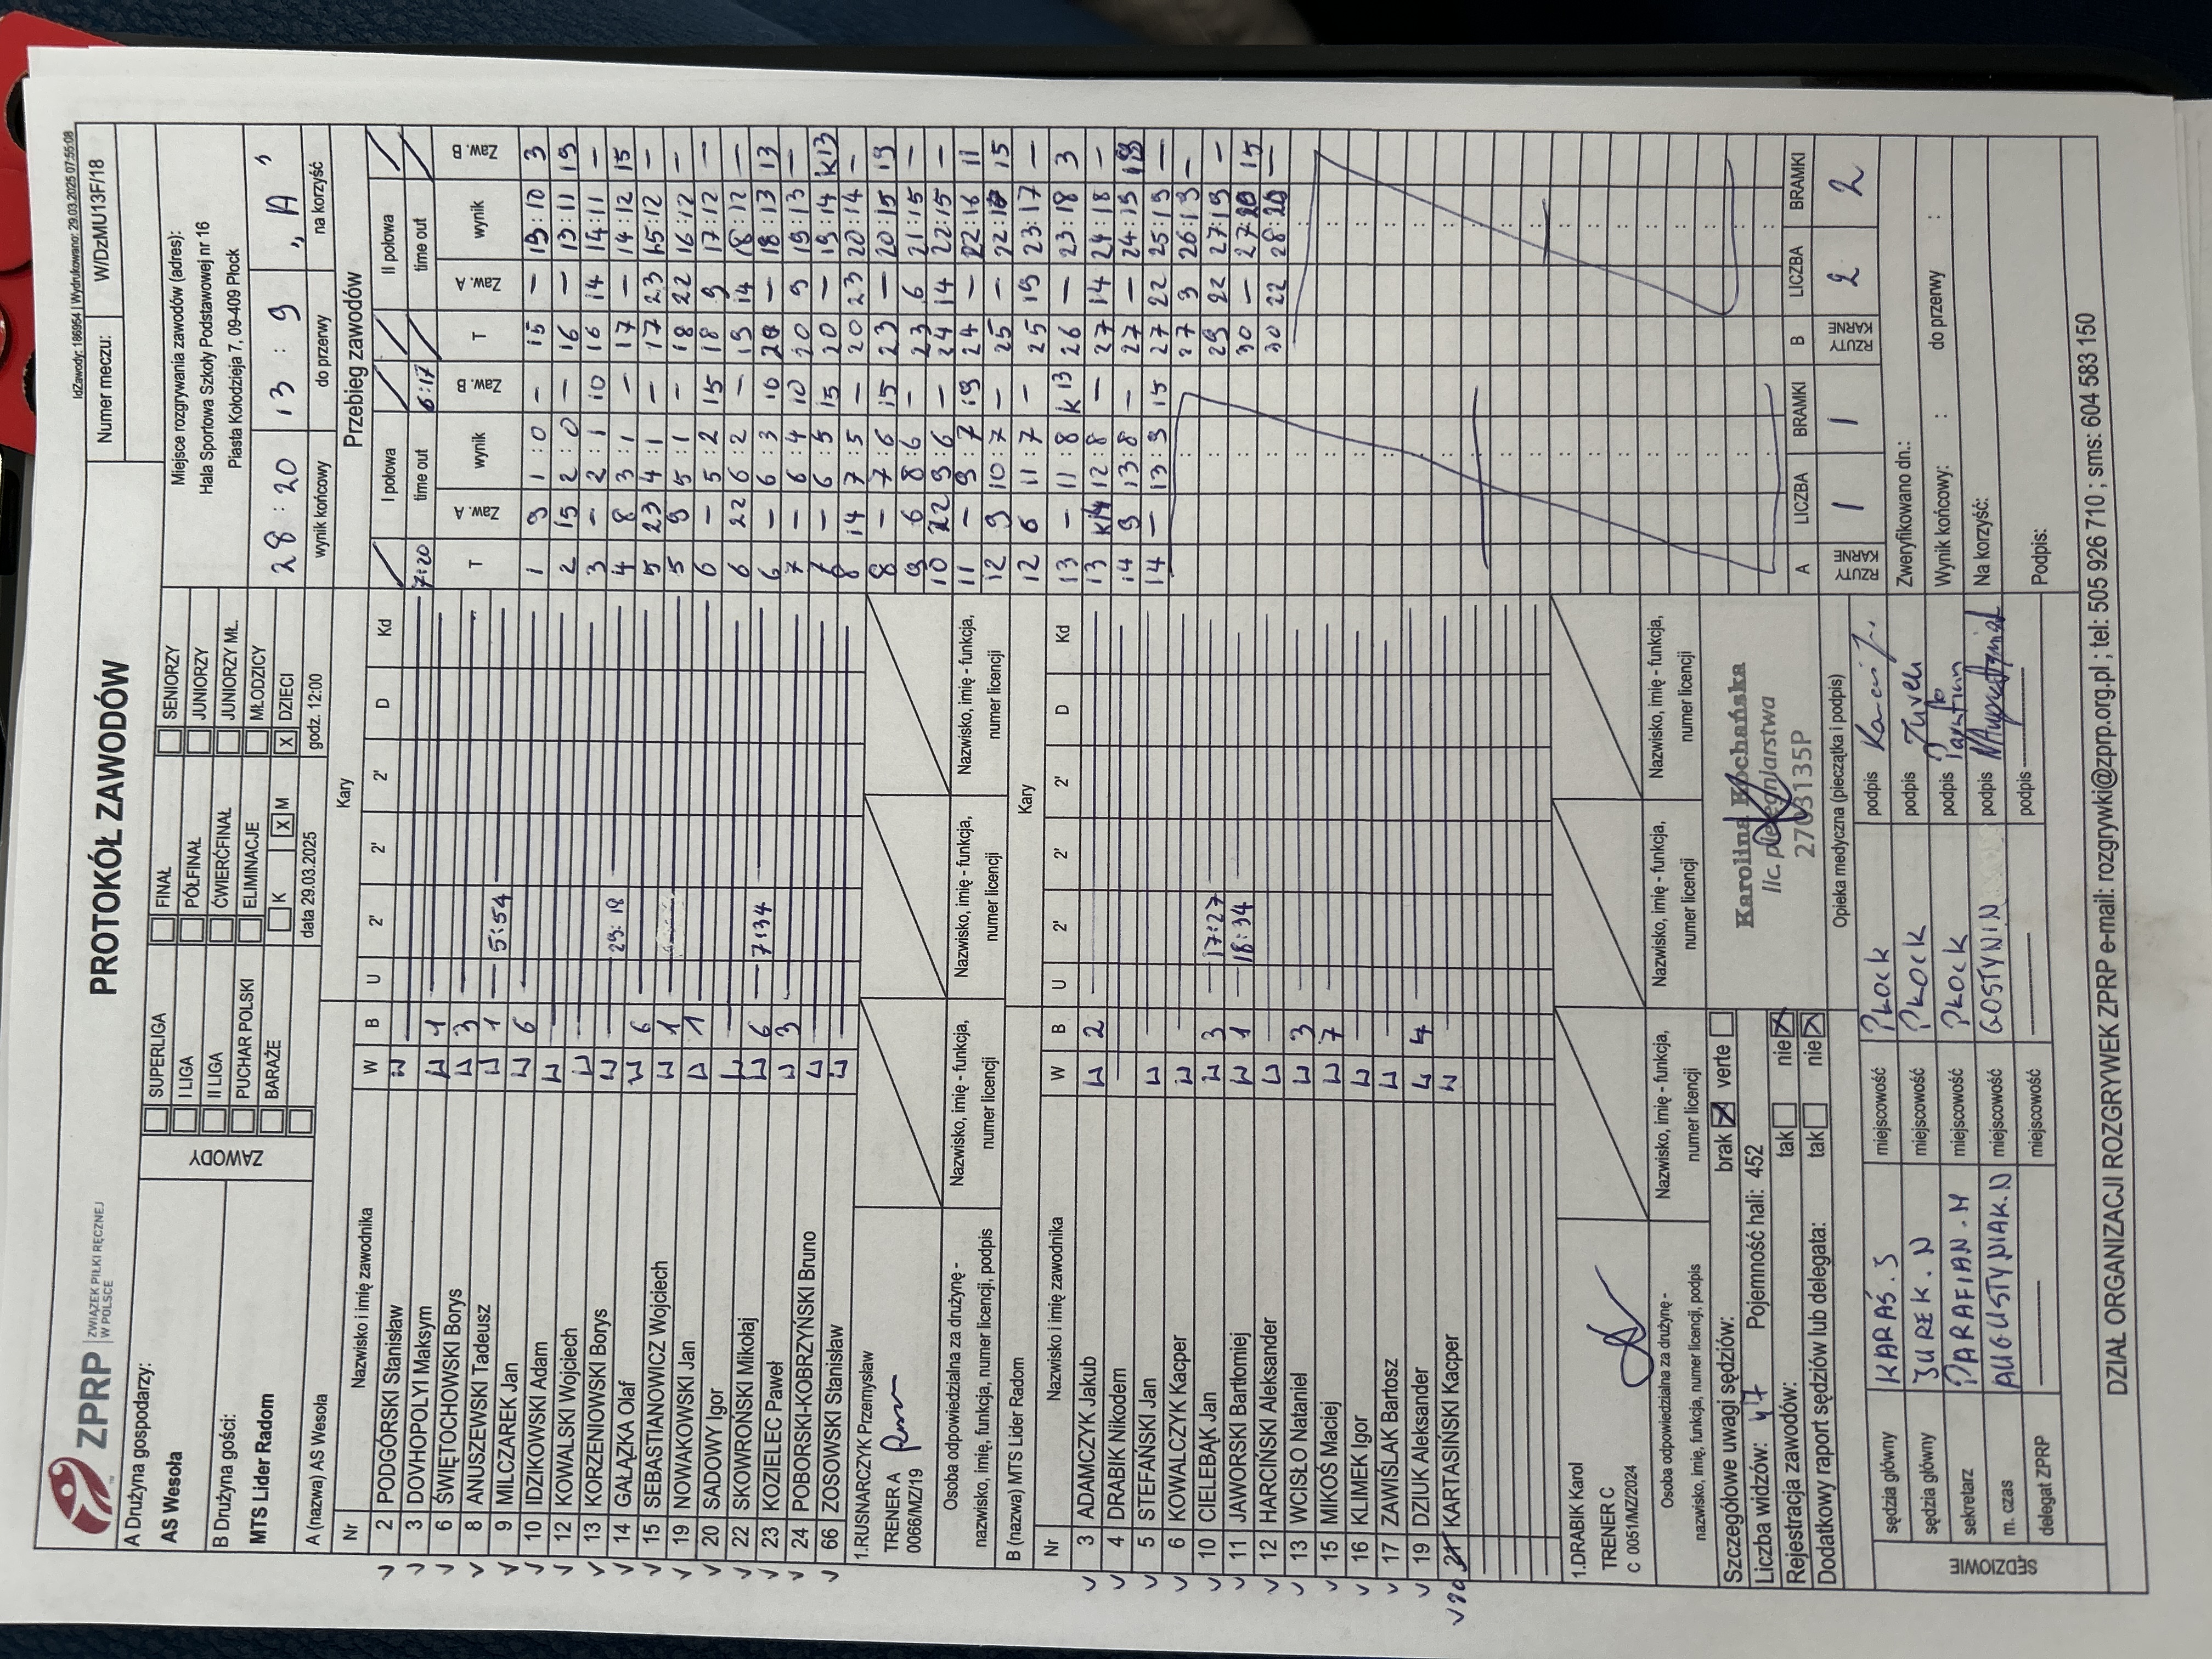 IdZawody: 186954 I Wydrukowano: 29.03.2025 07:55:08
ZPRP ZWIĄZEK PIŁKI RĘCZNEJ W POLSCE
PROTOKÓŁ ZAWODÓW
Numer meczu: W/DzMU13F/18
A Drużyna gospodarzy:
AS Wesoła
B Drużyna gości:
MTS Lider Radom
ZAWODY
SUPERLIGA FINAŁ SENIORZY
I LIGA PÓŁFINAŁ JUNIORZY
II LIGA ĆWIERĆFINAŁ JUNIORZY MŁ.
PUCHAR POLSKI ELIMINACJE MŁODZICY
BARAŻE K X M X DZIECI
data 29.03.2025 godz. 12:00
Miejsce rozgrywania zawodów (adres):
Hala Sportowa Szkoły Podstawowej nr 16
Piasta Kołodzieja 7, 09-409 Płock
28 : 20 13 : 9 „A"
wynik końcowy do przerwy na korzyść
A (nazwa) AS Wesoła Kary
Nr Nazwisko i imię zawodnika W B U 2' 2' 2' D Kd
2 PODGÓRSKI Stanisław
3 DOVHOPOLYI Maksym
6 ŚWIĘTOCHOWSKI Borys 1
8 ANUSZEWSKI Tadeusz 3
9 MILCZAREK Jan 1 5:54
10 IDZIKOWSKI Adam 6
12 KOWALSKI Wojciech
13 KORZENIOWSKI Borys
14 GAŁĄZKA Olaf 29:18
15 SEBASTIANOWICZ Wojciech 6
19 NOWAKOWSKI Jan 1
20 SADOWY Igor 1
22 SKOWROŃSKI Mikołaj
23 KOZIELEC Paweł 6 7:34
24 POBORSKI-KOBRZYŃSKI Bruno 3
66 ZOSOWSKI Stanisław
1.RUSNARCZYK Przemysław
TRENER A
0066/MZ/19
Osoba odpowiedzialna za drużynę - nazwisko, imię, funkcja, numer licencji, podpis
Nazwisko, imię - funkcja, numer licencji
Nazwisko, imię - funkcja, numer licencji
Nazwisko, imię - funkcja, numer licencji
B (nazwa) MTS Lider Radom Kary
Nr Nazwisko i imię zawodnika W B U 2' 2' 2' D Kd
3 ADAMCZYK Jakub 2
4 DRABIK Nikodem
5 STEFAŃSKI Jan
6 KOWALCZYK Kacper
10 CIELEBĄK Jan 3 17:27
11 JAWORSKI Bartłomiej 1 18:34
12 HARCIŃSKI Aleksander
13 WCISŁO Nataniel 3
15 MIKOŚ Maciej 7
16 KLIMEK Igor
17 ZAWIŚLAK Bartosz
19 DZIUK Aleksander 4
20 21 KARTASIŃSKI Kacper
1.DRABIK Karol
TRENER C
C 0051/MZ/2024
Osoba odpowiedzialna za drużynę - nazwisko, imię, funkcja, numer licencji, podpis
Nazwisko, imię - funkcja, numer licencji
Nazwisko, imię - funkcja, numer licencji
Nazwisko, imię - funkcja, numer licencji
Szczegółowe uwagi sędziów: brak verte
Liczba widzów: 47 Pojemność hali: 452
Rejestracja zawodów: tak nie
Dodatkowy raport sędziów lub delegata: tak nie
Karolina Kochańska
lic. pielęgniarstwa
2703135P
Opieka medyczna (pieczątka i podpis)
SĘDZIOWIE
sędzia główny KARAŚ.S miejscowość PŁOCK podpis
sędzia główny JUREK.N miejscowość PŁOCK podpis Jurek
sekretarz PARAFIAN.M miejscowość PŁOCK podpis
m. czas AUGUSTYNIAK.N miejscowość GOSTYNIN podpis
delegat ZPRP miejscowość podpis
Przebieg zawodów
I połowa II połowa
7:20 time out 6:17 time out
T Zaw. A wynik Zaw. B T Zaw. A wynik Zaw. B
1 9 1:0 – 15 – 13:10 3
2 15 2:0 – 16 – 13:11 19
3 – 2:1 10 16 14 14:11 –
4 8 3:1 – 17 – 14:12 15
5 23 4:1 – 17 23 15:12 –
5 9 5:1 – 18 22 16:12 –
6 – 5:2 15 18 9 17:12 –
6 22 6:2 – 19 14 18:12 –
6 – 6:3 10 20 – 18:13 13
7 – 6:4 10 20 9 19:13 –
7 – 6:5 15 20 – 19:14 K13
8 14 7:5 – 20 23 20:14 –
8 – 7:6 15 23 – 20:15 19
9 6 8:6 – 23 6 21:15 –
10 22 9:6 – 24 14 22:15 –
11 – 9:7 19 24 – 22:16 11
12 9 10:7 – 25 – 22:17 15
12 6 11:7 – 25 19 23:17 –
13 – 11:8 K13 26 – 23:18 3
13 K14 12:8 – 27 14 24:18 –
14 9 13:8 – 27 – 24:19 13
14 – 13:9 15 27 22 25:19 –
27 9 26:19 –
29 22 27:19 –
30 – 27:20 15
30 22 28:20 –
A LICZBA BRAMKI B LICZBA BRAMKI
RZUTY KARNE 1 1 RZUTY KARNE 2 2
Zweryfikowano dn.:
Wynik końcowy: : do przerwy :
Na korzyść:
Podpis:
DZIAŁ ORGANIZACJI ROZGRYWEK ZPRP e-mail: rozgrywki@zprp.org.pl ; tel: 505 926 710 ; sms: 604 583 150